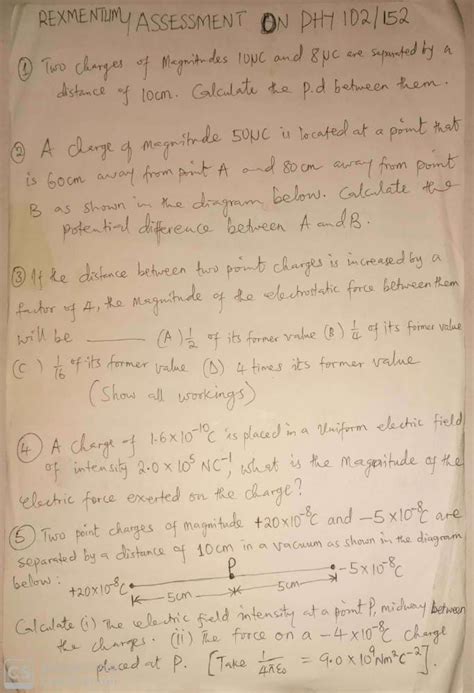 REXMENTUM/ASSESSMENT ON PHY 102/152
① Two charges of Magnitudes 10μC and 8μC are separated by a
distance of 10cm. Calculate the p.d between them.
② A charge of magnitude 50μC is located at a point that
is 60cm away from point A and 80cm away from point
B as shown in the diagram below. Calculate the
potential difference between A and B.
③ If the distance between two point charges is increased by a
factor of 4, the magnitude of the electrostatic force between them
will be ______ (A) 1/2 of its former value (B) 1/4 of its former value
(C) 1/16 of its former value (D) 4 times its former value
(Show all workings)
④ A charge of 1.6×10⁻¹⁰C is placed in a Uniform electric field
of intensity 2.0×10⁵ NC⁻¹, what is the magnitude of the
electric force exerted on the charge?
⑤ Two point charges of magnitude +20×10⁻⁸C and −5×10⁻⁸C are
separated by a distance of 10cm in a vacuum as shown in the diagram
below: +20×10⁻⁸C 5cm P 5cm −5×10⁻⁸C
Calculate (i) The electric field intensity at a point P, midway between
the charges. (ii) The force on a −4×10⁻⁸C charge
placed at P. [Take 1/4πε₀ = 9.0×10⁹Nm²C⁻²].
CS